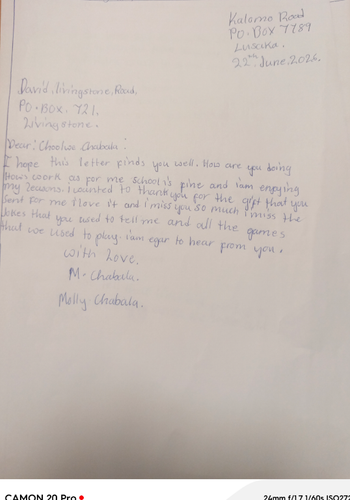 Kalomo Road
PO. BOX 7789
Lusaka.
22nd June. 2026.
David. livingstone. Road.
PO. BOX. 721.
Livingstone.
Dear: Choolwe Chabala:
I hope this letter finds you well. How are you doing
How's work as for me school is fine and iam enjoying
my lessons. I wanted to thank you for the gift that you
sent for me I love it and i miss you so much i miss the
jokes that you used to tell me and all the games
that we used to play. iam egar to hear from you.
With Love.
M. Chabala.
Molly Chabala.
CAMON 20 Pro
24mm f/1.7 1/60s ISO272